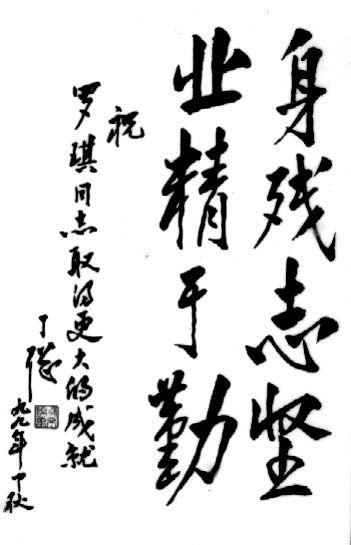 身残志坚
业精于勤
祝
罗琪同志取得更大的成就
丁
九九年中秋